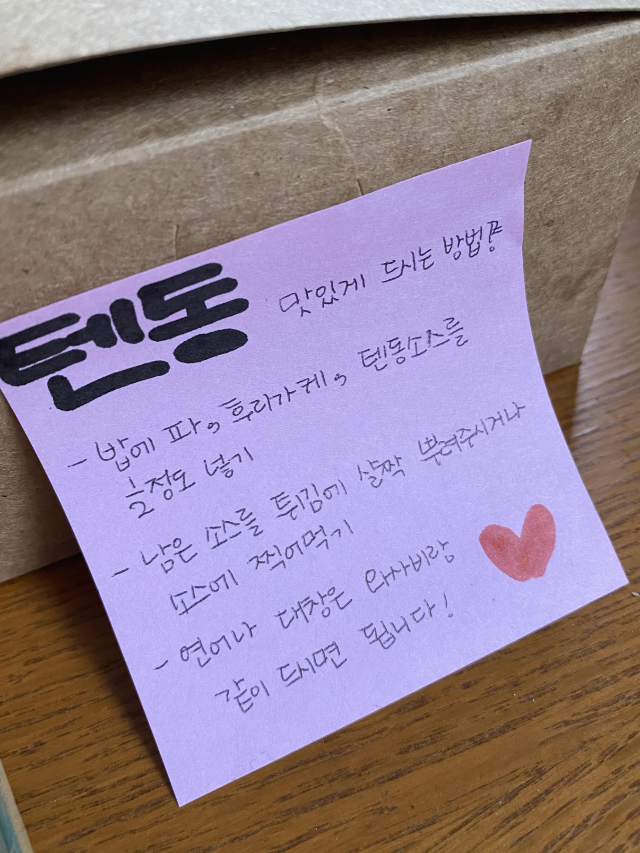 텐동 맛있게 드시는 방법!
- 밥에 파, 후리가케, 텐동소스를
½정도 넣기
- 남은 소스를 튀김에 살짝 뿌려주시거나
소스에 찍어먹기
- 연어나 대창은 와사비랑
같이 드시면 됩니다!